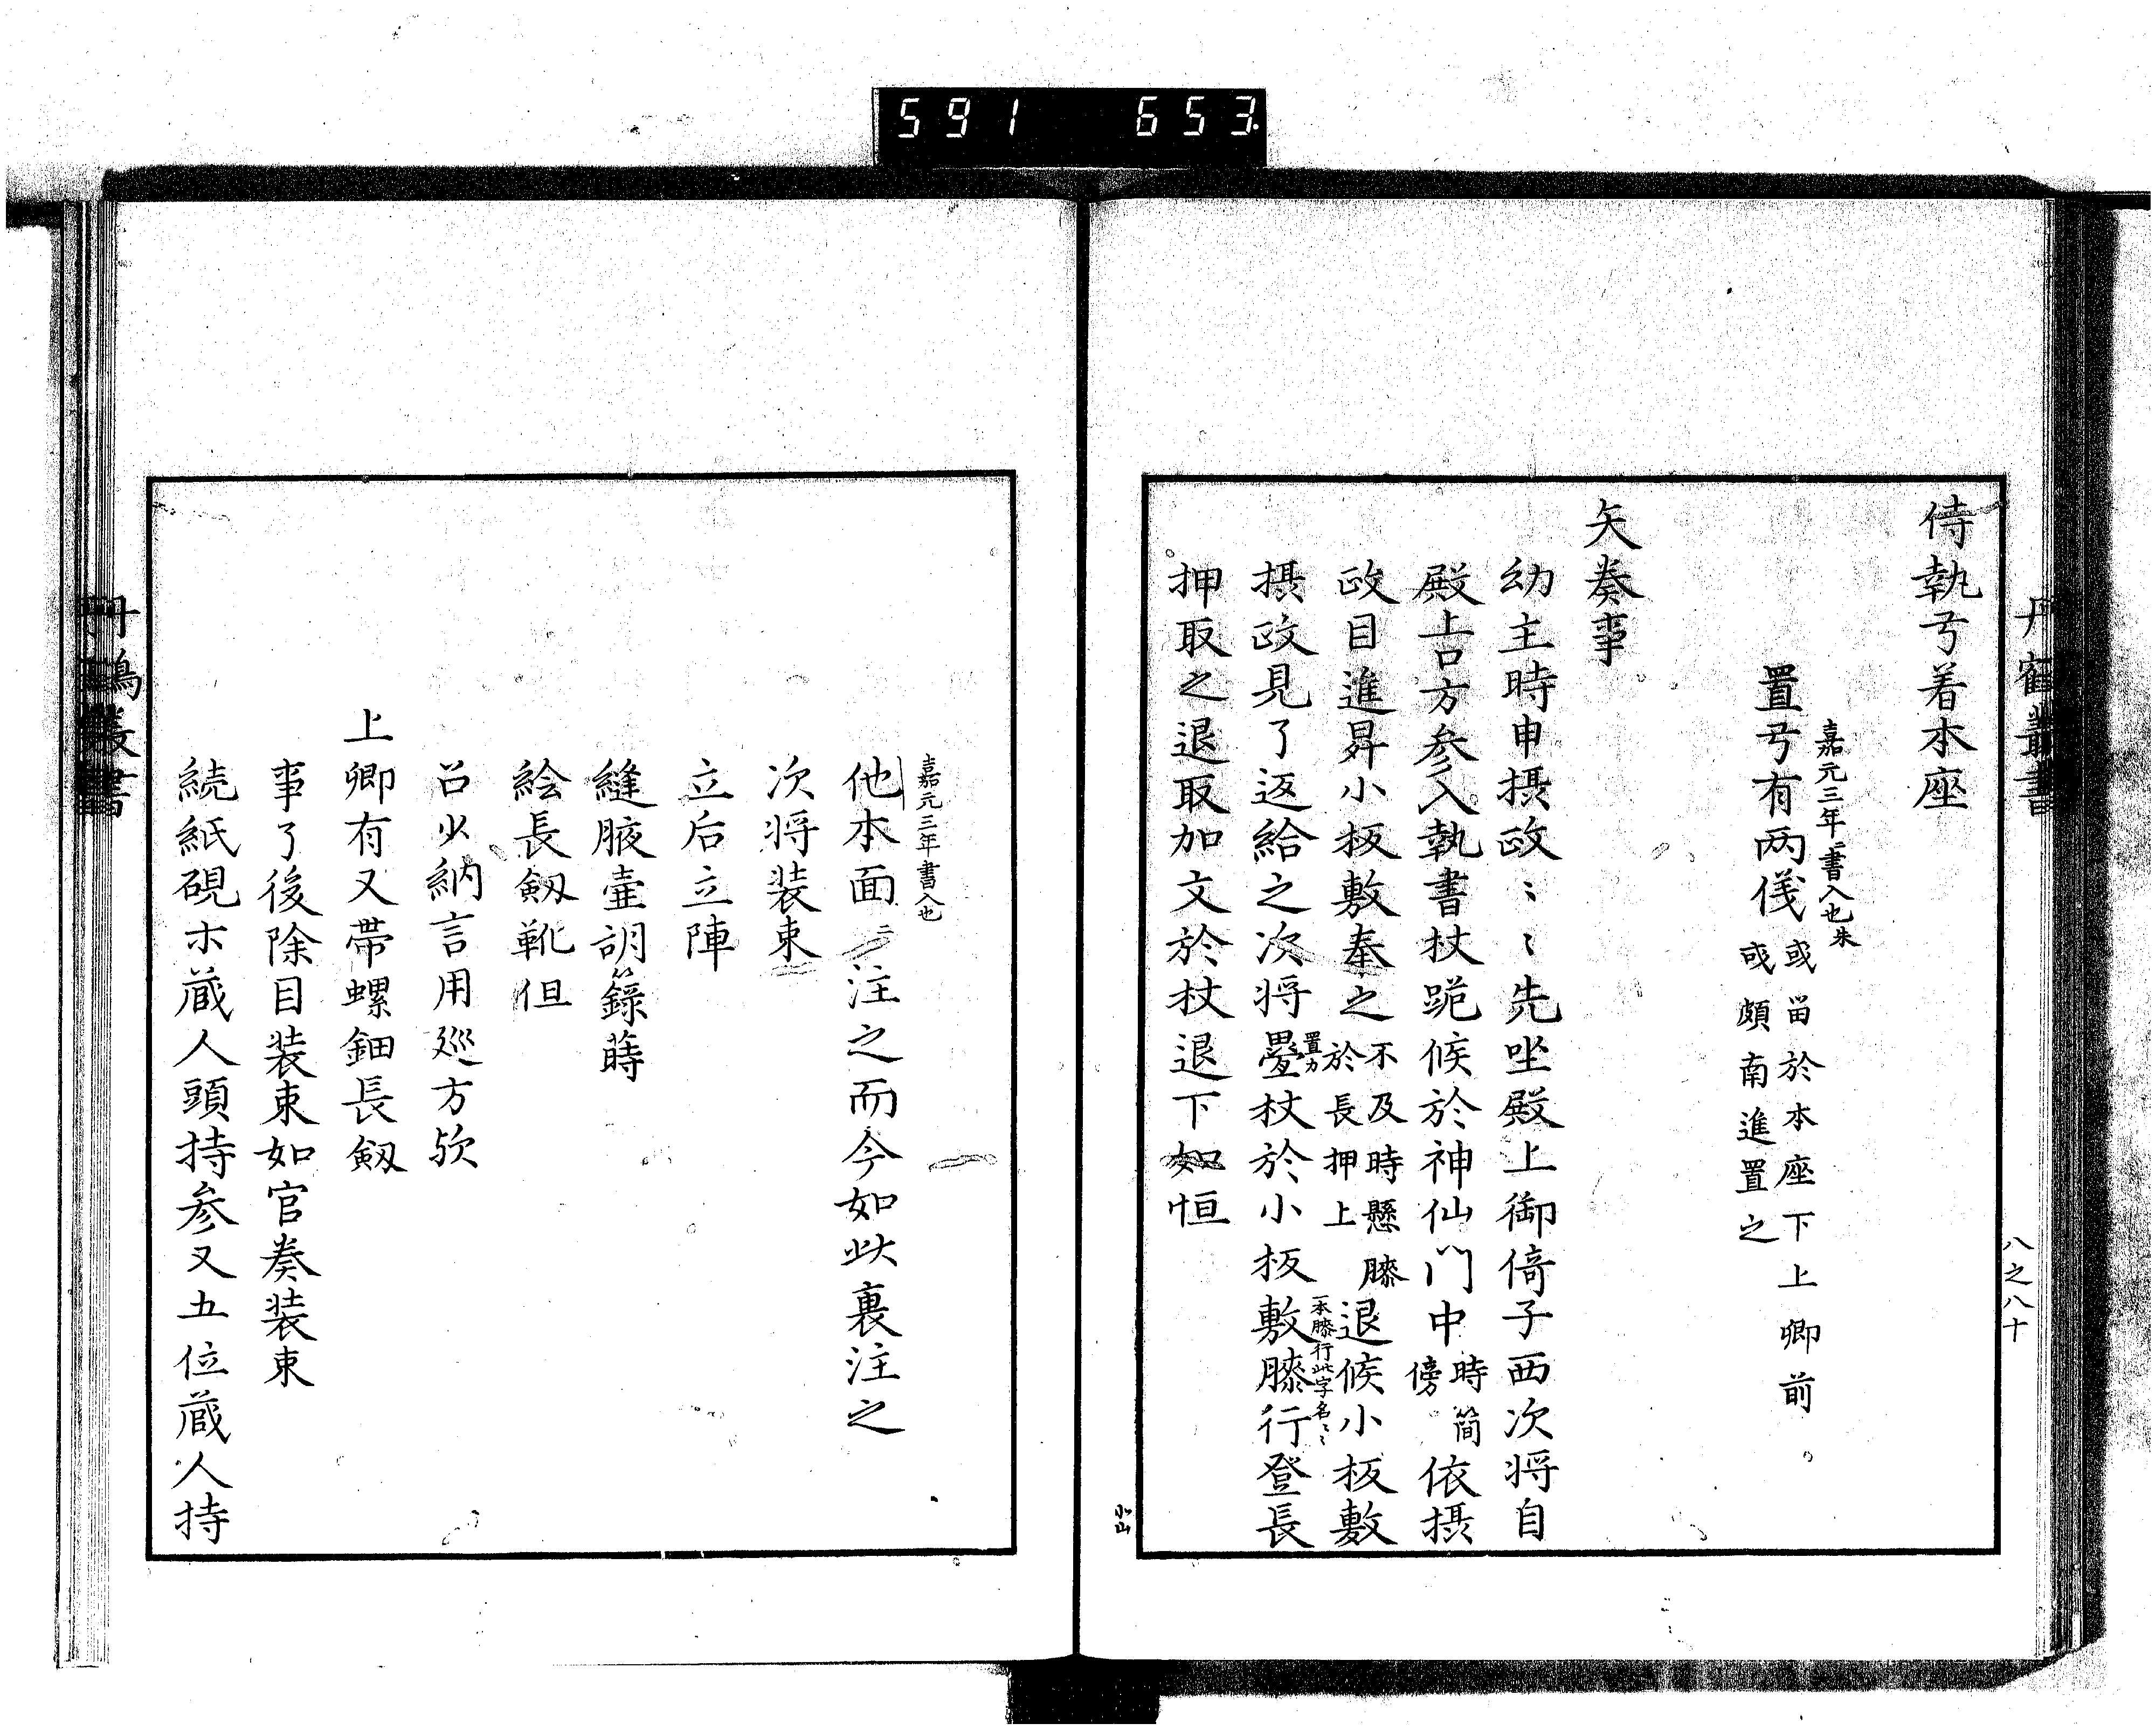 591 653
丹寉叢書
八之八十
侍執弓着本座
嘉元三年書入也朱
置弓有両儀 或留於本座下上卿前
或頗南進置之
矢奏事
幼主時申摂政〻〻先坐殿上御倚子西次将自
殿上口方参入執書杖跪候於神仙门中 時簡傍 依摂
政目進昇小板敷奉之 不及時懸膝於長押上 退候小板敷
置カ
一本膝行此字名〻
摂政見了返給之次将疊杖於小板敷膝行登長
押取之退取加文於杖退下如恒
小山
嘉元三年書入也
他本面ニ注之而今如此裏注之
次将装束
立后立陣
縫腋壷胡籙蒔
絵長釼靴但
召少納言用廵方欤
上卿有又帯螺鈿長釼
事了後除目装束如官奏装束
続紙硯ホ蔵人頭持参又五位蔵人持
丹鶴叢書